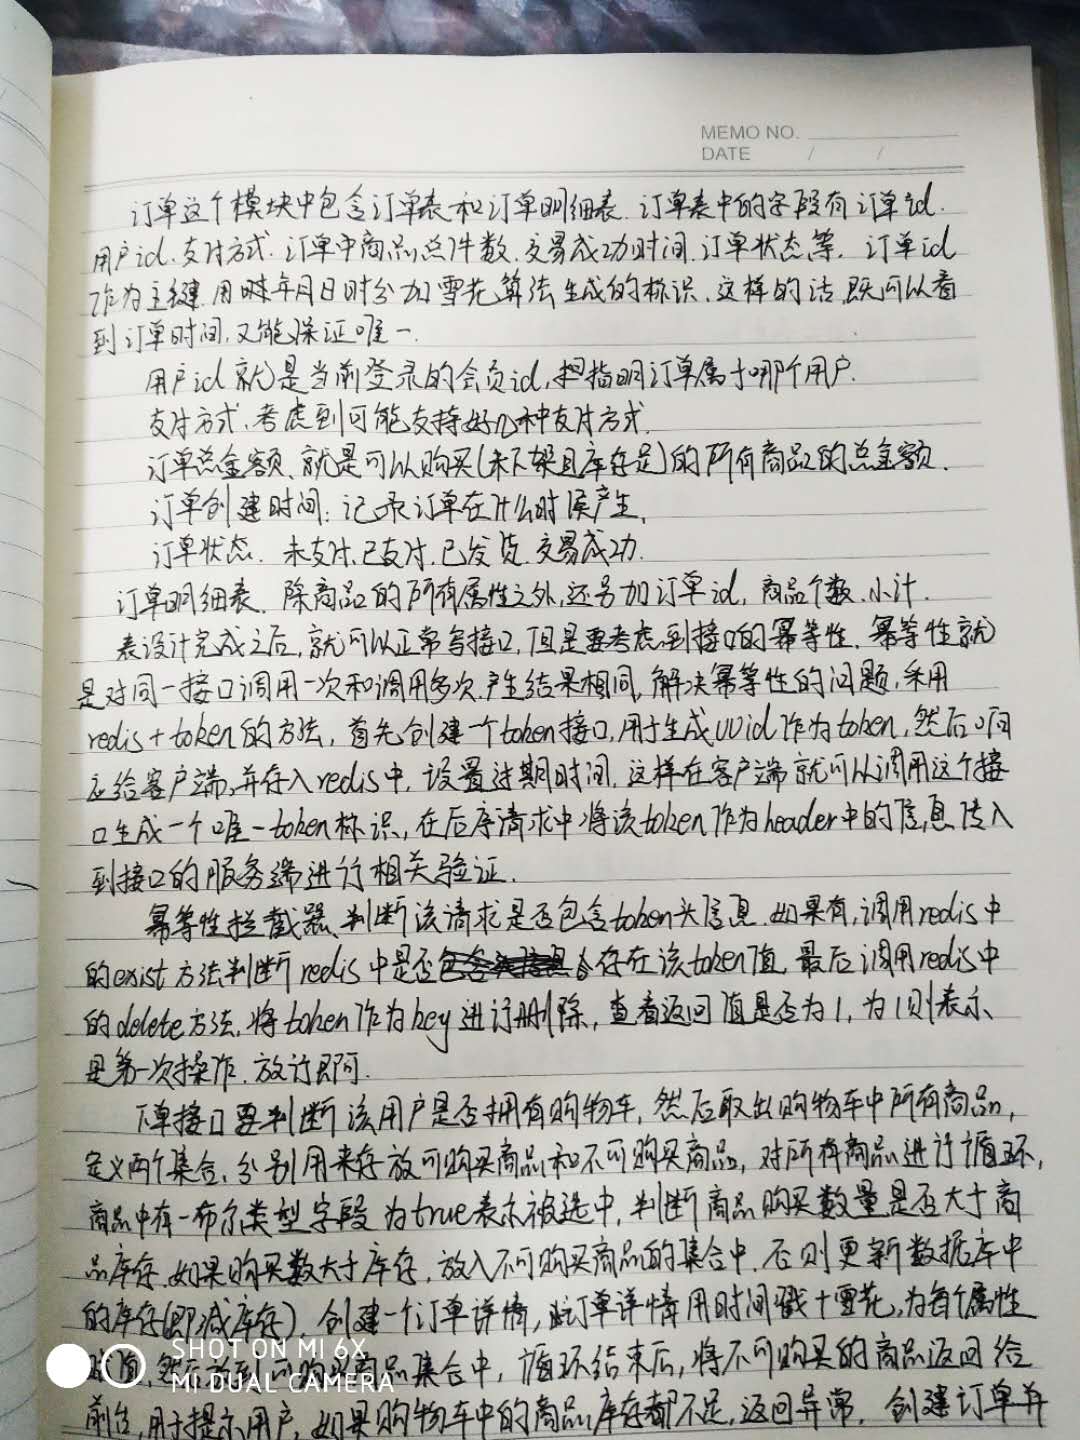 MEMO NO.
DATE / /
订单这个模块中包含订单表和订单明细表.订单表中的字段有订单id.
用户id.支付方式.订单中商品总件数.交易成功时间.订单状态等.订单id
作为主键.用年月日时分加雪花算法生成的标识.这样的话,既可以看
到订单时间,又能保证唯一.
用户id就是当前登录的会员id,指明订单属于哪个用户.
支付方式,考虑到可能支持好几种支付方式.
订单总金额、就是可以购买(未下架且库存足)的所有商品的总金额.
订单创建时间:记录订单在什么时候产生.
订单状态.未支付.已支付.已发货.交易成功.
订单明细表、除商品的所有属性之外,还另加订单id,商品个数.小计.
表设计完成之后,就可以正常写接口,但是要考虑到接口的幂等性.幂等性就
是对同一接口调用一次和调用多次,产生结果相同,解决幂等性的问题,采用
redis+token的方法,首先创建一个token接口,用于生成uuid作为token,然后响
应给客户端,并存入redis中,设置过期时间.这样在客户端就可以调用这个接
口生成一个唯一token标识,在后序请求中将该token作为header中的信息传入
到接口的服务端进行相关验证.
幂等性拦截器、判断该请求是否包含token头信息.如果有,调用redis中
的exist方法判断redis中是否存在该token值,最后调用redis中
的delete方法,将token作为key进行删除,查看返回值是否为1,为1则表示
是第一次操作.放行即可.
下单接口要判断该用户是否拥有购物车,然后取出购物车中所有商品,
定义两个集合,分别用来存放可购买商品和不可购买商品,对所有商品进行循环,
商品中有一布尔类型字段为true表示被选中,判断商品购买数量是否大于商
品库存.如果购买数大于库存,放入不可购买商品的集合中.否则更新数据库中
的库存(即减库存),创建一个订单详情,此订单详情用时间戳+雪花,为每个属性
赋值,然后放到可购买商品集合中,循环结束后,将不可购买的商品返回给
前台,用于提示用户,如果购物车中的商品库存都不足,返回异常.创建订单并
SHOT ON MI 6X
MI DUAL CAMERA